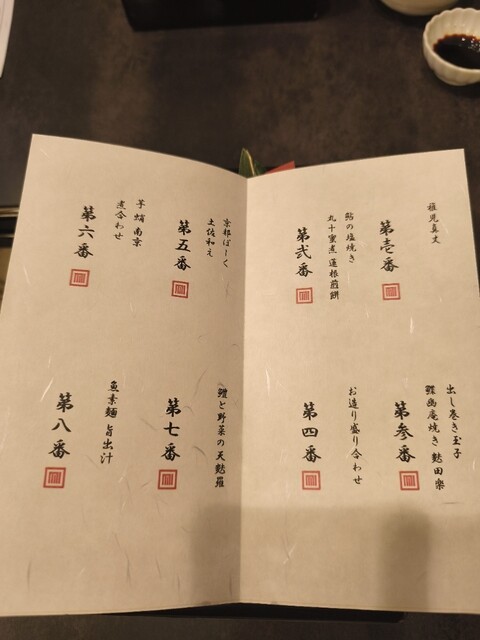 稚児真丈
第壱番
鮎の塩焼き
丸十蜜煮 蓮根煎餅
第弐番
出し巻き玉子
鰈幽庵焼き 麩田楽
第参番
お造り盛り合わせ
第四番
京都ぽーく
土佐和え
第五番
芋 蛸 南京
煮合わせ
第六番
鱧と野菜の天麩羅
第七番
魚素麺 旨出汁
第八番